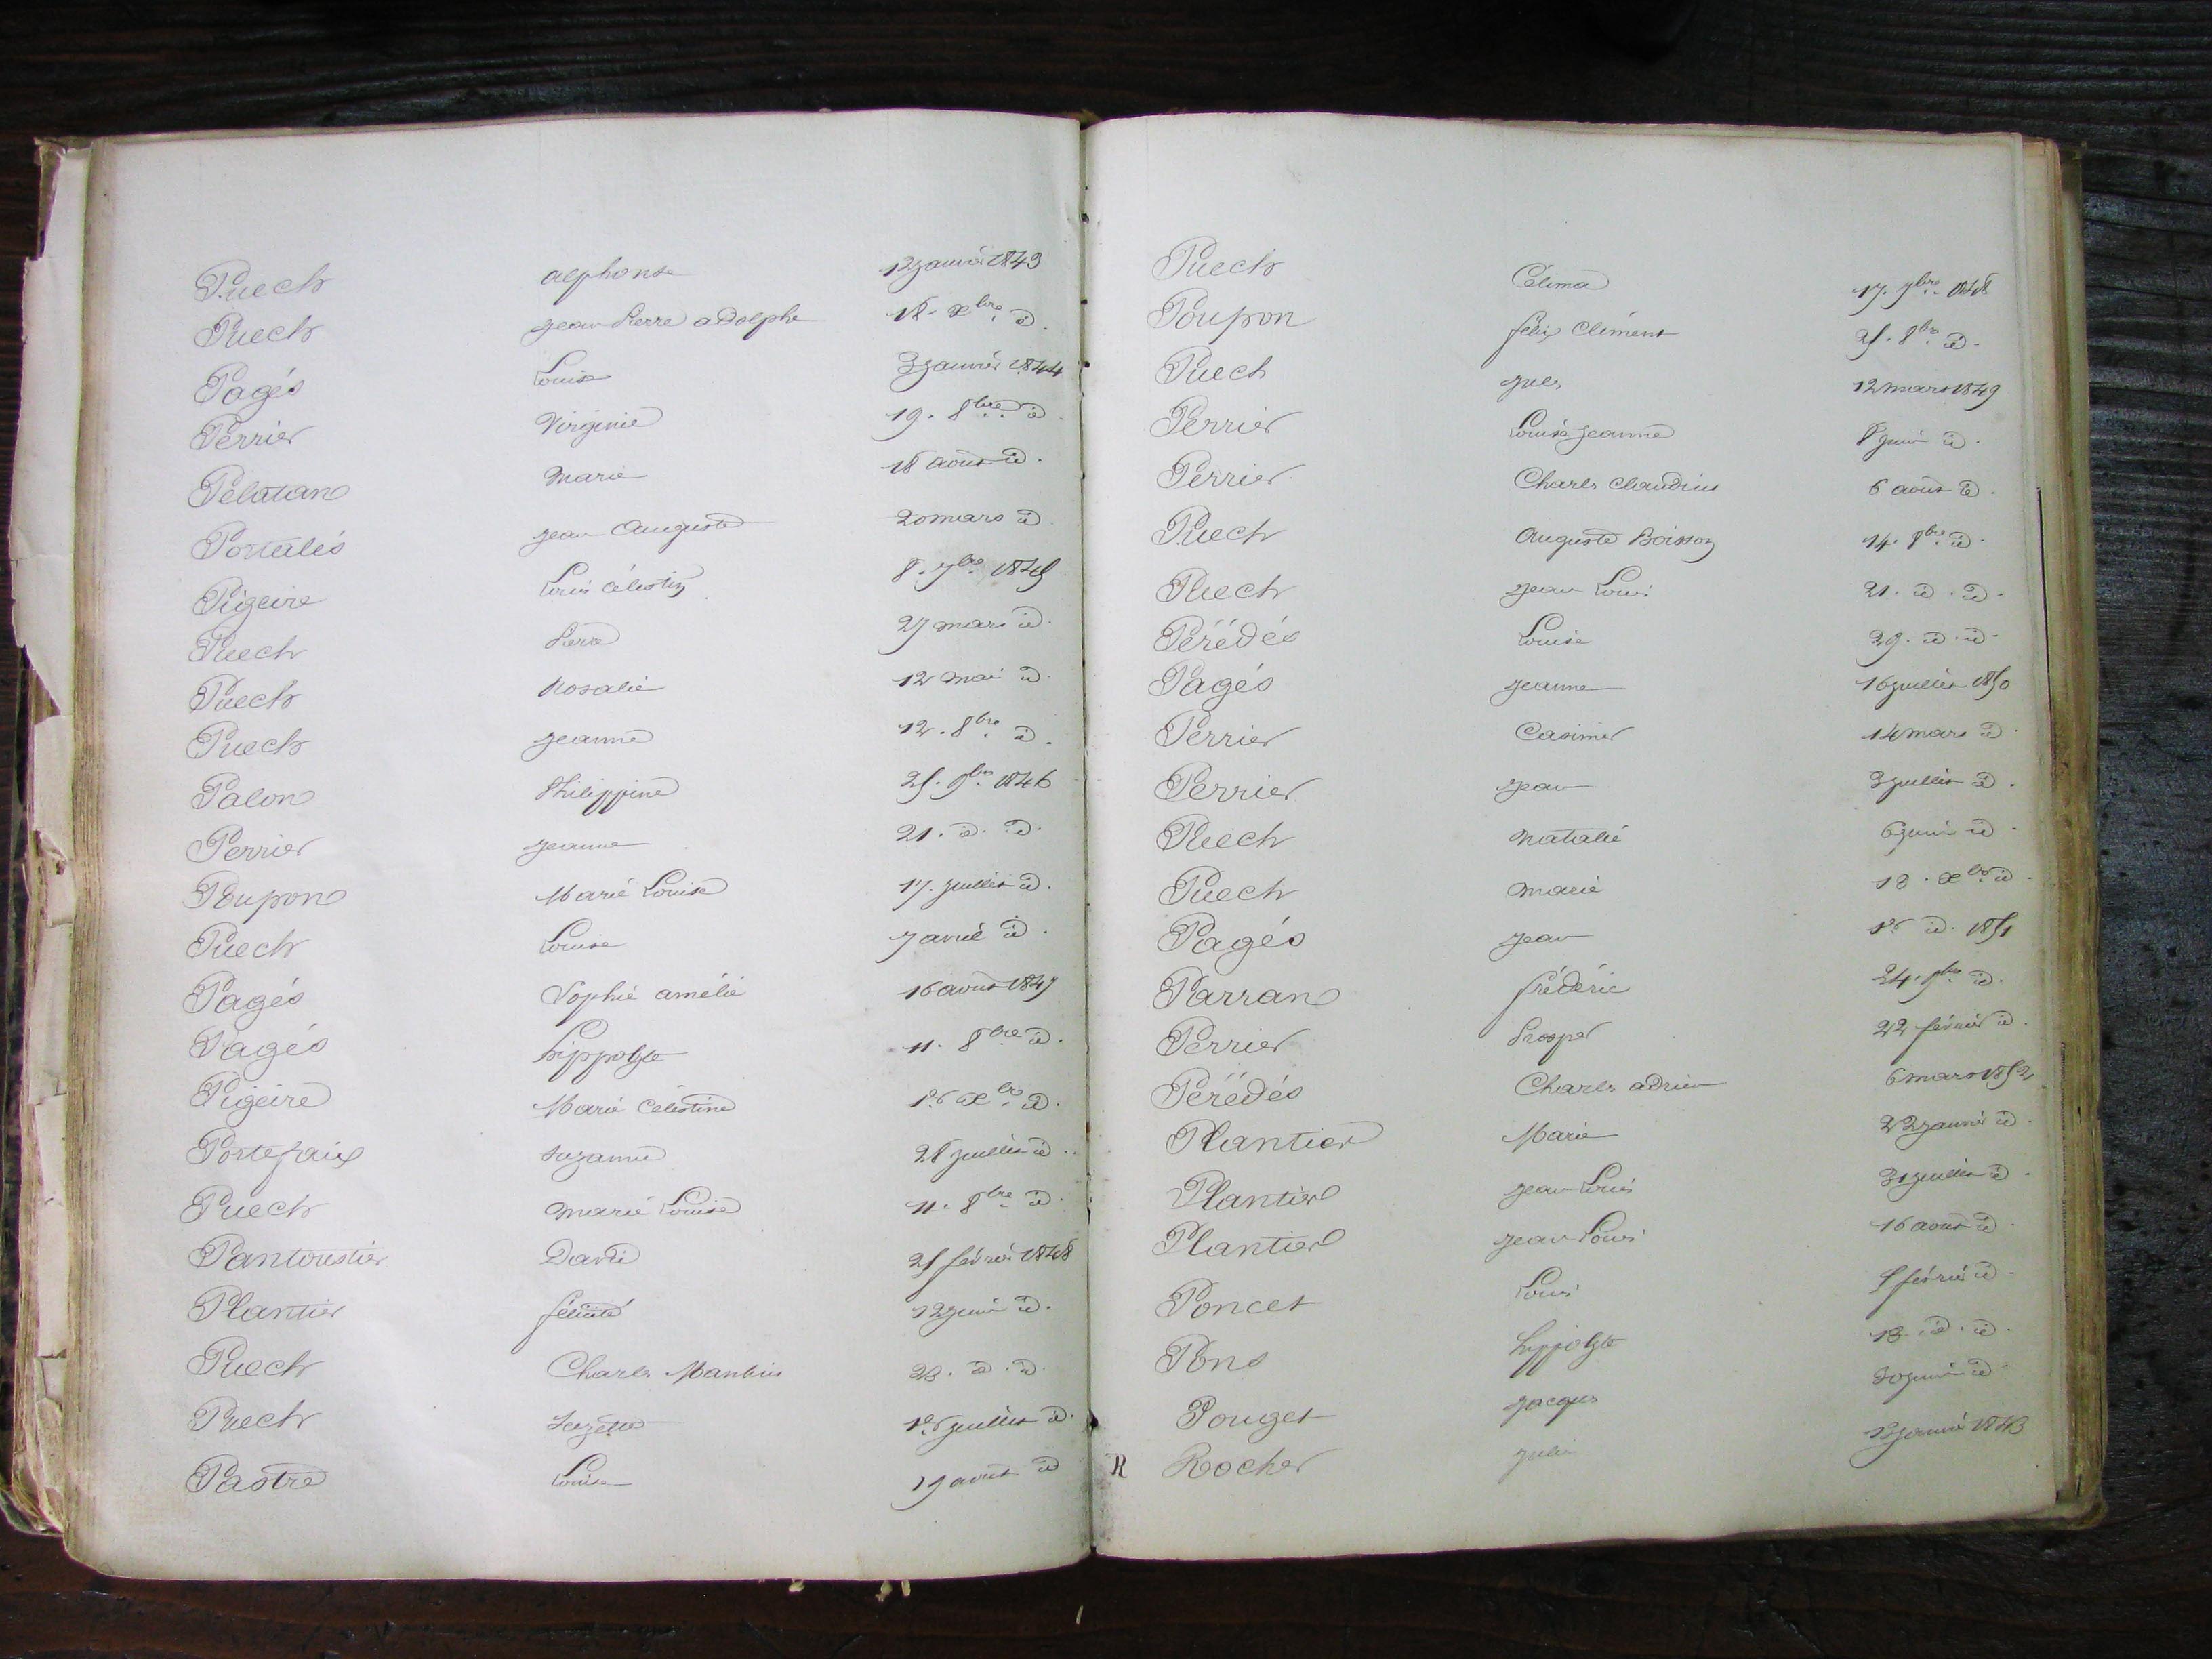 Puech alphonse 12 janvier 1843
Puech jean Pierre adolphe 18. xbre id.
Pagés Louise 3 janvier 1844
Perrier Virginie 19. 8bre id.
Pelatan Marie 18 aout id.
Portalés jean Auguste 20 mars id
Pigeire Louis Célestin 8. 7bre 1845
Puech Pierre 27 mars id.
Puech Rosalie 12 mai id.
Puech jeanne 12. 8bre id.
Palon Philippine 25. 9bre 1846
Perrier jeanne 21. id. id.
Poupon Marie Louise 17. juillet id.
Puech Louise 7 avril id.
Pagés Sophie amélie 16 aout 1847
Pagés hippolyte 11. 8bre id.
Pigeire Marie Célestine 1er xbre id.
Portefaix Suzanne 28 juillet id.
Puech Marie Louise 11. 8bre id.
Pantoustier David 25 février 1848
Plantier félicité 12 juin id.
Puech Charles 23. id. id.
Puech Suzette 1er juillet id.
Pastre Louise 19 aout id
Puech Célima 17. 7bre. 1848
Poupon félix Clément 25. 8bre. id.
Puech jules 12 mars 1849
Perrier Louise jeanne 8 juin id.
Perrier Charles Claudius 6 aout id.
Puech Auguste Boisson 14. 8bre. id.
Puech jean Louis 21. id. id.
Pérédés Louise 29. id. id.
Pagés jeanne 16 juillet 1850
Perrier Casimir 14 mars id.
Perrier jean 3 juillet id.
Puech Natalie 6 juin id.
Puech Marie 18. xbre. id.
Pagés jean 1er id. 1851
Parran frédéric 24. 9bre. id.
Perrier Prosper 22 février id.
Pérédés Charles adrien 6 mars 1852
Plantier Marie 22 janvier id.
Plantier jean Louis 31 juillet id.
Plantier jean Louis 16 aout id.
Poncet Louis 5 février id.
Pons hippolyte 18. id. id.
Pouget jacques 30 juin id.
R Rocher julie janvier 1843